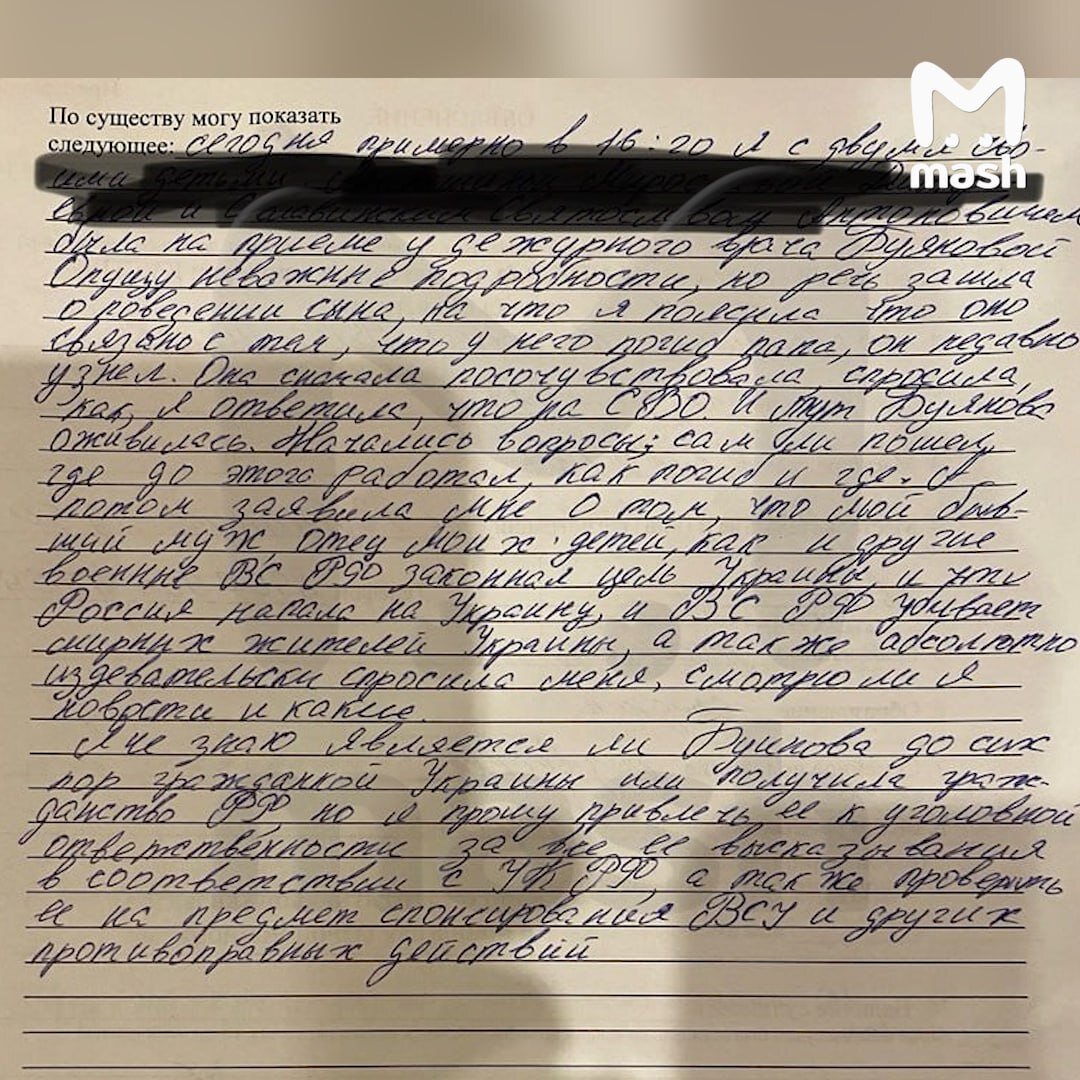 По существу могу показать
следующее: сегодня примерно в 16:20 я с двумя сво-
была на приеме у дежурного врача Буяновой
Опущу неважные подробности, но речь зашла
о поведении сына, на что я пояснила что оно
связано с тем, что у него погиб папа, он недавно
узнал. Она сначала посочувствовала, спросила,
как, я ответила, что на СВО. И тут Буянова
оживилась. Начались вопросы: сам ли пошел,
где до этого работал, как погиб и где. А
потом заявила мне о том, что мой быв-
ший муж, отец моих детей, как и другие
военные ВС РФ законная цель Украины, и что
Россия напала на Украину, и ВС РФ убивает
мирных жителей Украины, а также абсолютно
издевательски спросила меня, смотрю ли я
новости и какие.
Я не знаю является ли Буянова до сих
пор гражданкой Украины или получила граж-
данство РФ но я прошу привлечь ее к уголовной
ответственности за все ее высказывания
в соответствии с УК РФ, а также проверить
ее на предмет спонсирования ВСУ и других
противоправных действий
mash